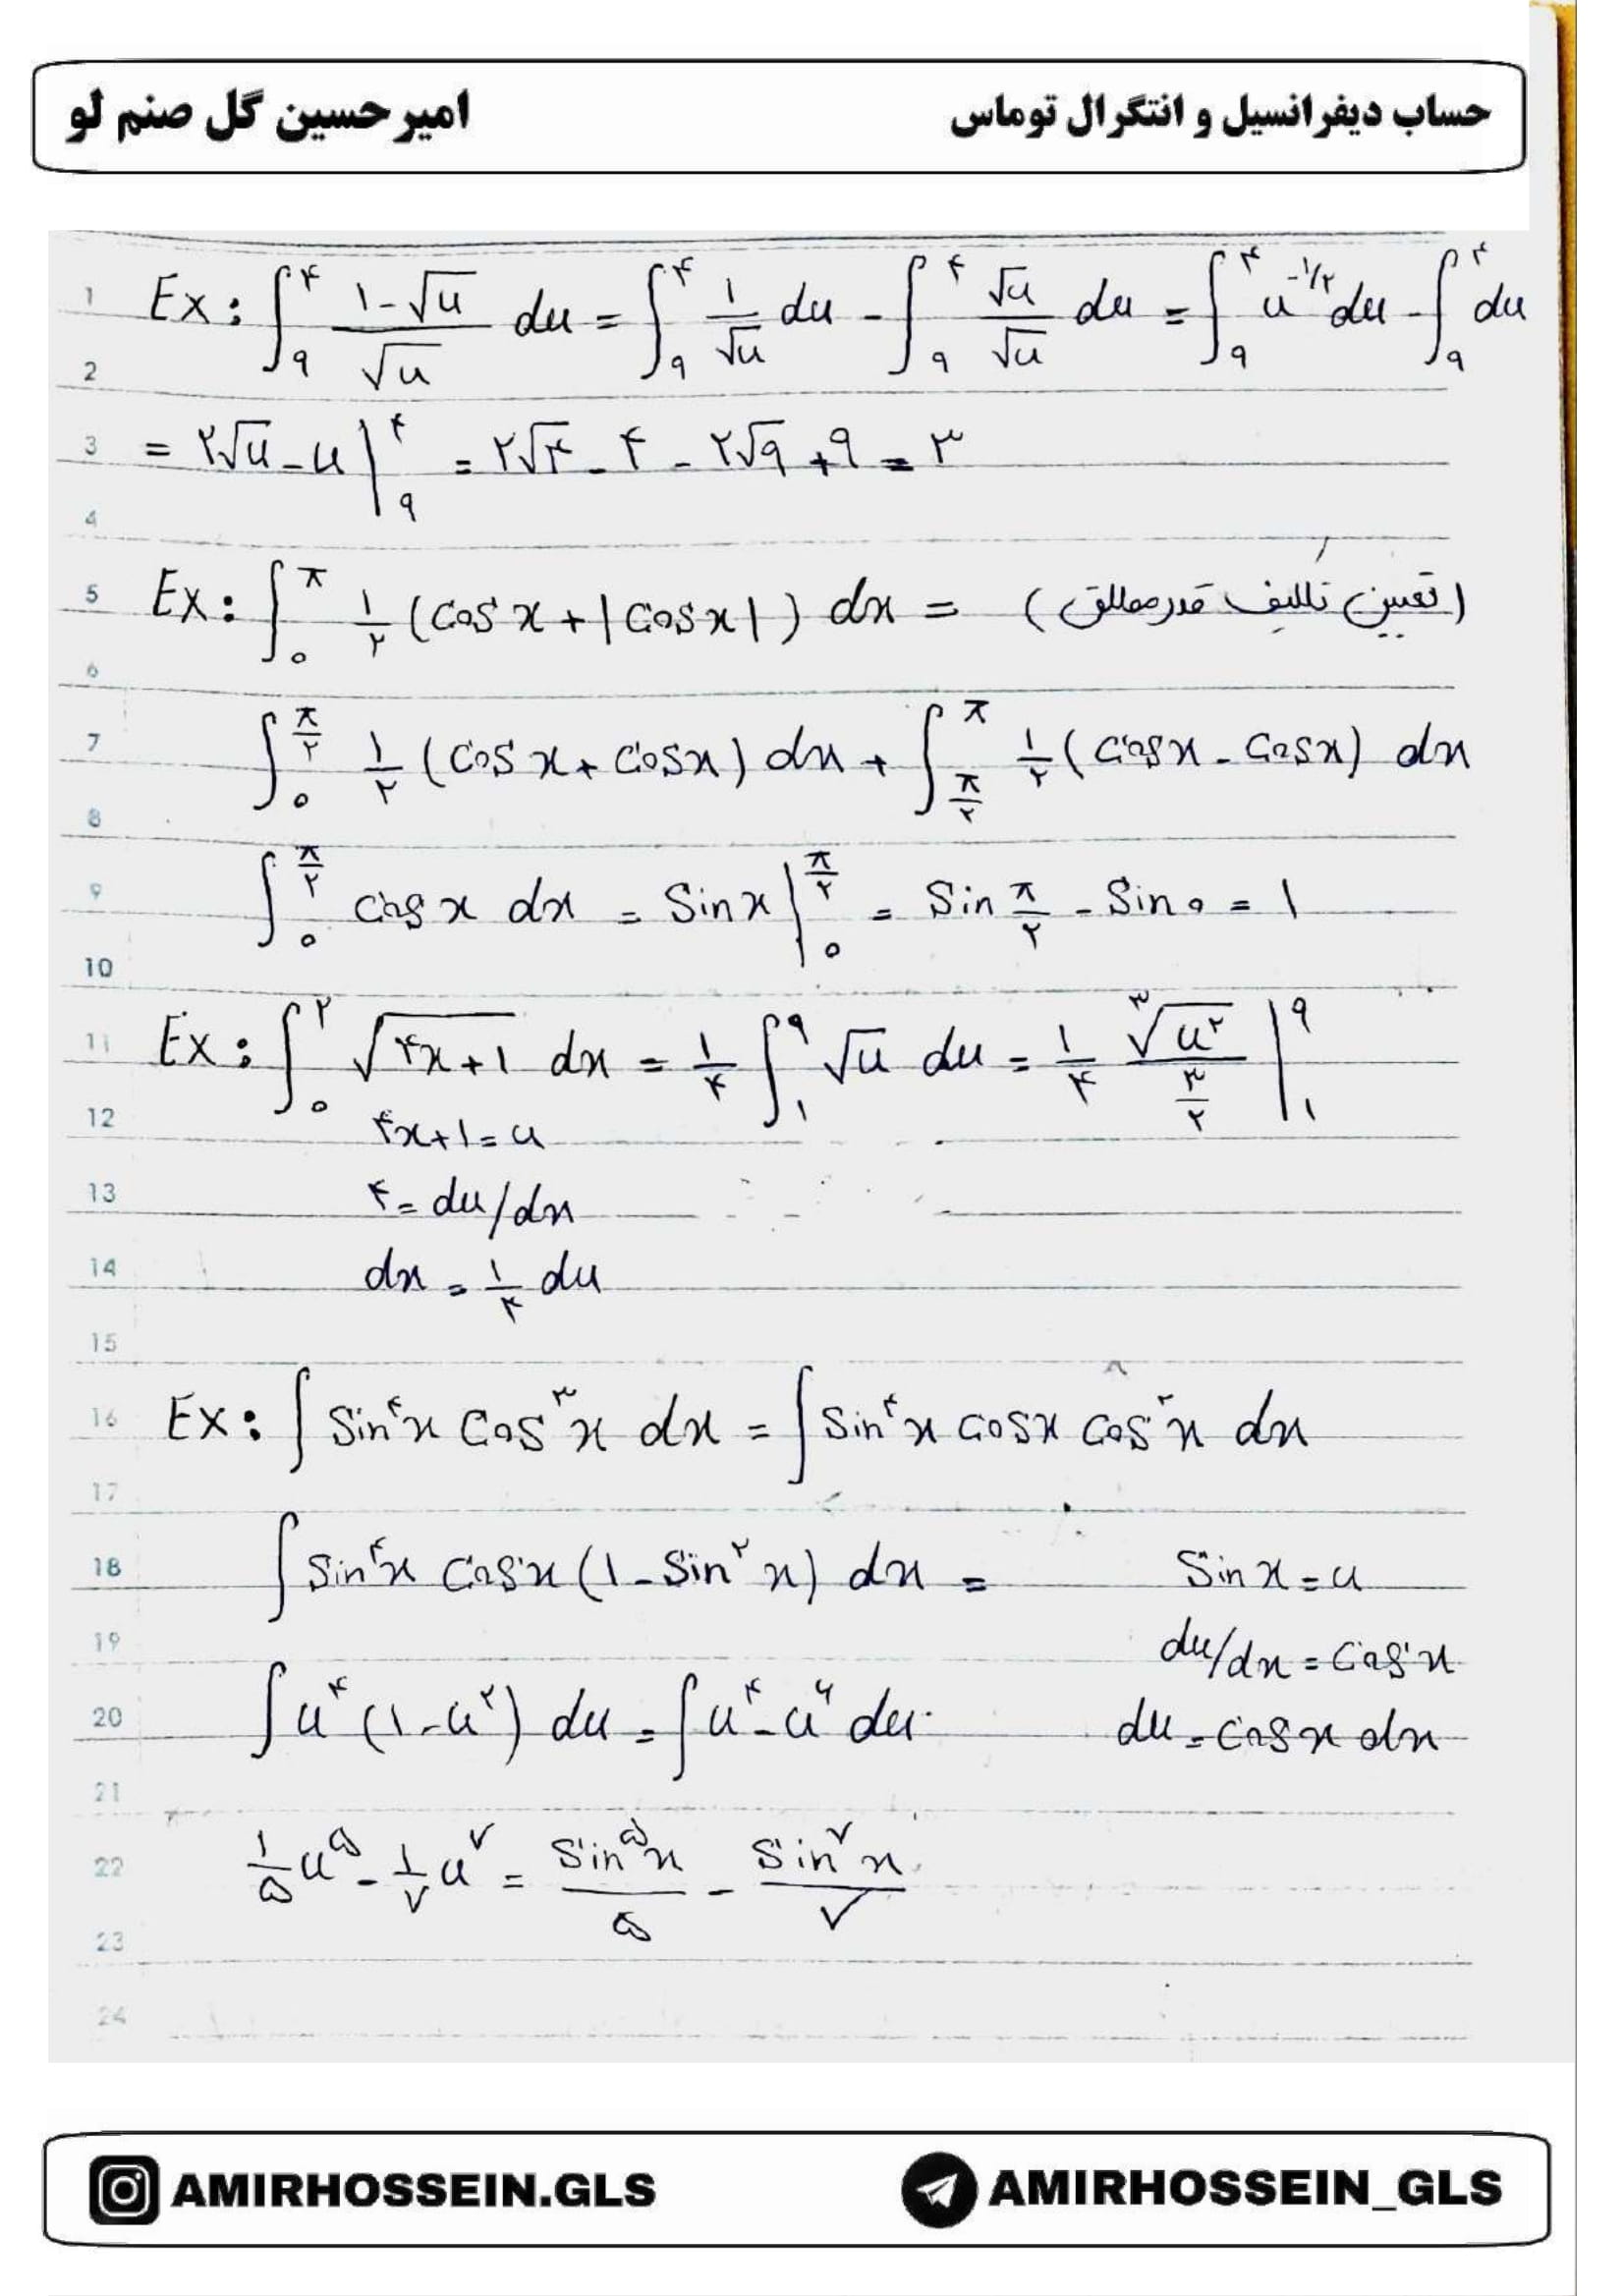 حساب دیفرانسیل و انتگرال توماس
امیرحسین گل صنم لو
1 Ex: ∫_۹^۴ (۱-√u)/√u du = ∫_۹^۴ ۱/√u du - ∫_۹^۴ √u/√u du = ∫_۹^۴ u^(-۱/۲) du - ∫_۹^۴ du
2
3 = ۲√u - u |_۹^۴ = ۲√۴ - ۴ - ۲√۹ + ۹ = ۳
4
5 Ex: ∫_۰^π ۱/۲ (cos x + |cos x|) dx = (تعیین تکلیف قدرمطلق)
6
7 ∫_۰^(π/۲) ۱/۲ (cos x + cos x) dx + ∫_(π/۲)^π ۱/۲ (cos x - cos x) dx
8
9 ∫_۰^(π/۲) cos x dx = Sin x |_۰^(π/۲) = Sin π/۲ - Sin ۰ = ۱
10
11 Ex: ∫_۰^۲ √(۴x+۱) dx = ۱/۴ ∫_۱^۹ √u du = ۱/۴ ∛(u^۲)/(۳/۲) |_۱^۹
12 ۴x+۱=u
13 ۴ = du/dx
14 dx = ۱/۴ du
15
16 Ex: ∫ Sin^۴ x Cos^۳ x dx = ∫ Sin^۴ x cos x cos^۲ x dx
17
18 ∫ Sin^۴ x Cos x (۱ - Sin^۲ x) dx = Sin x = u
19 du/dx = cos x
20 ∫ u^۴ (۱-u^۲) du = ∫ u^۴ - u^۶ du du = cos x dx
21
22 ۱/۵ u^۵ - ۱/۷ u^۷ = Sin^۵ x/۵ - Sin^۷ x/۷
23
24
AMIRHOSSEIN.GLS
AMIRHOSSEIN_GLS